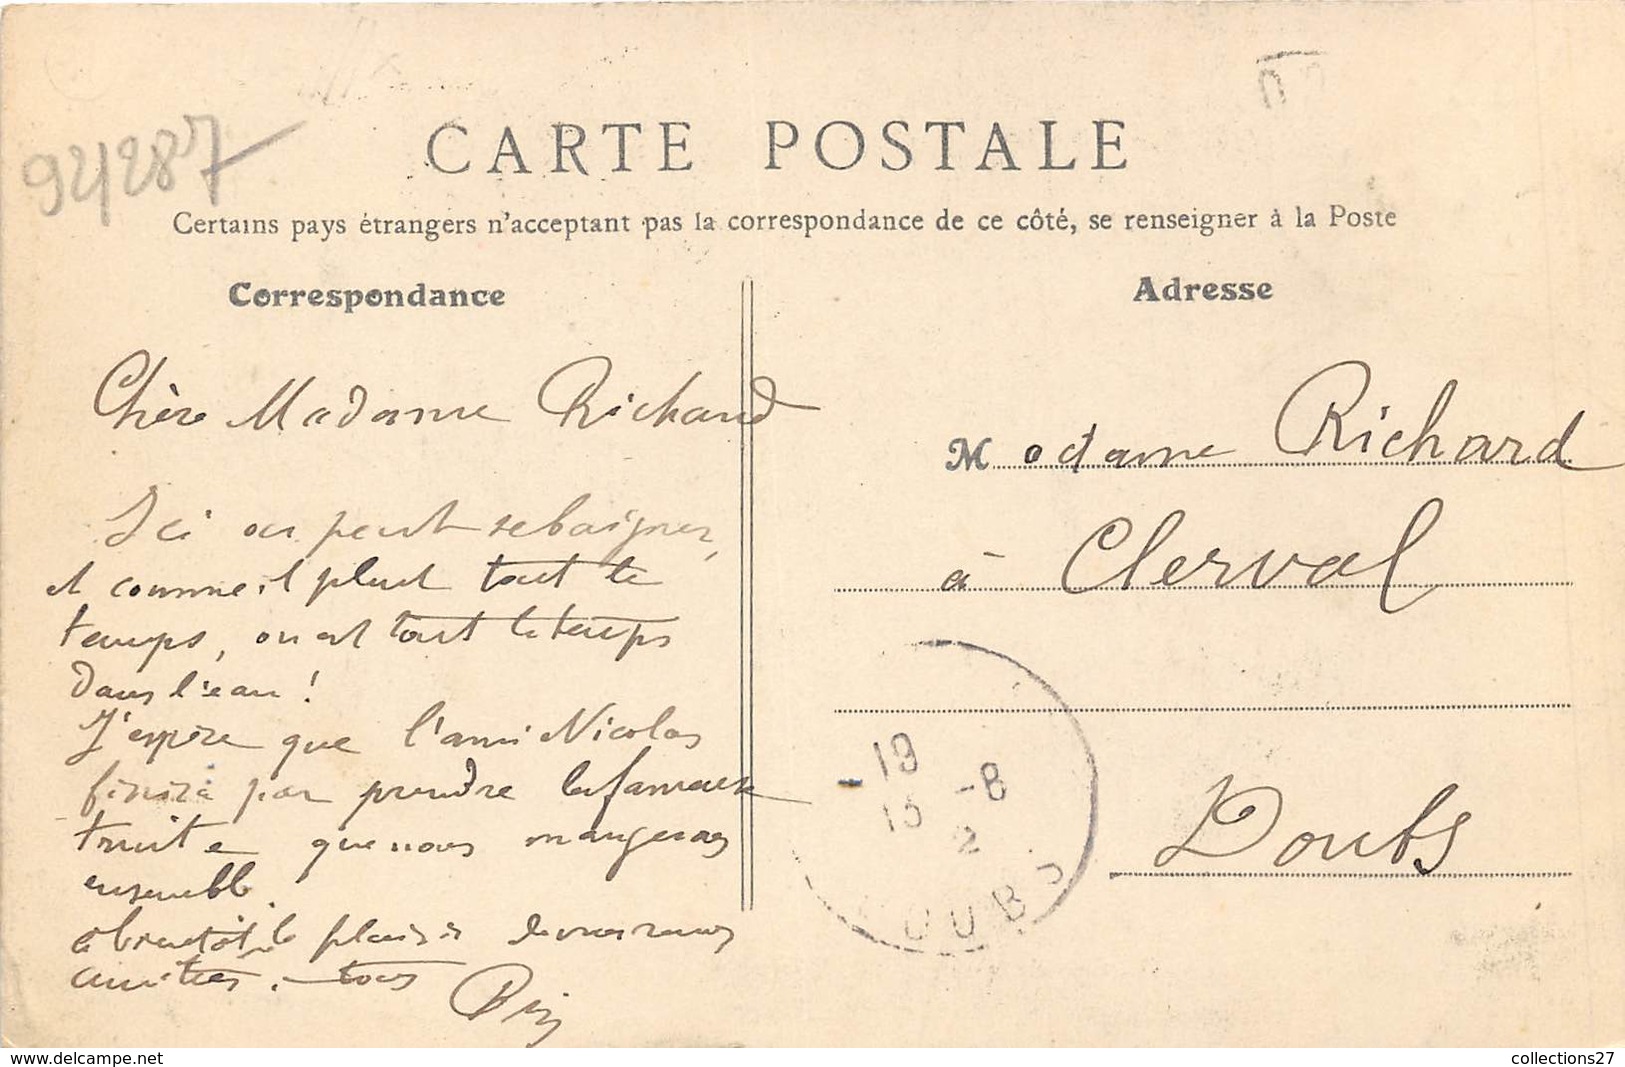 92/287
CARTE POSTALE
Certains pays étrangers n'acceptant pas la correspondance de ce côté, se renseigner à la Poste
Correspondance
Adresse
Chère Madame Richard
Ici on peut se baigner,
et comme il pleut tout le
temps, on est tout le temps
dans l'eau!
J'espère que l'ami Nicolas
finira par prendre la fameuse
truite que nous mangerons
ensemble.
à bientôt le plaisir de vous revoir
amitiés. tous
Madame Richard
à Clerval
Doubs
-19
15 -8
2
OUBS
www.delcampe.net
collections27